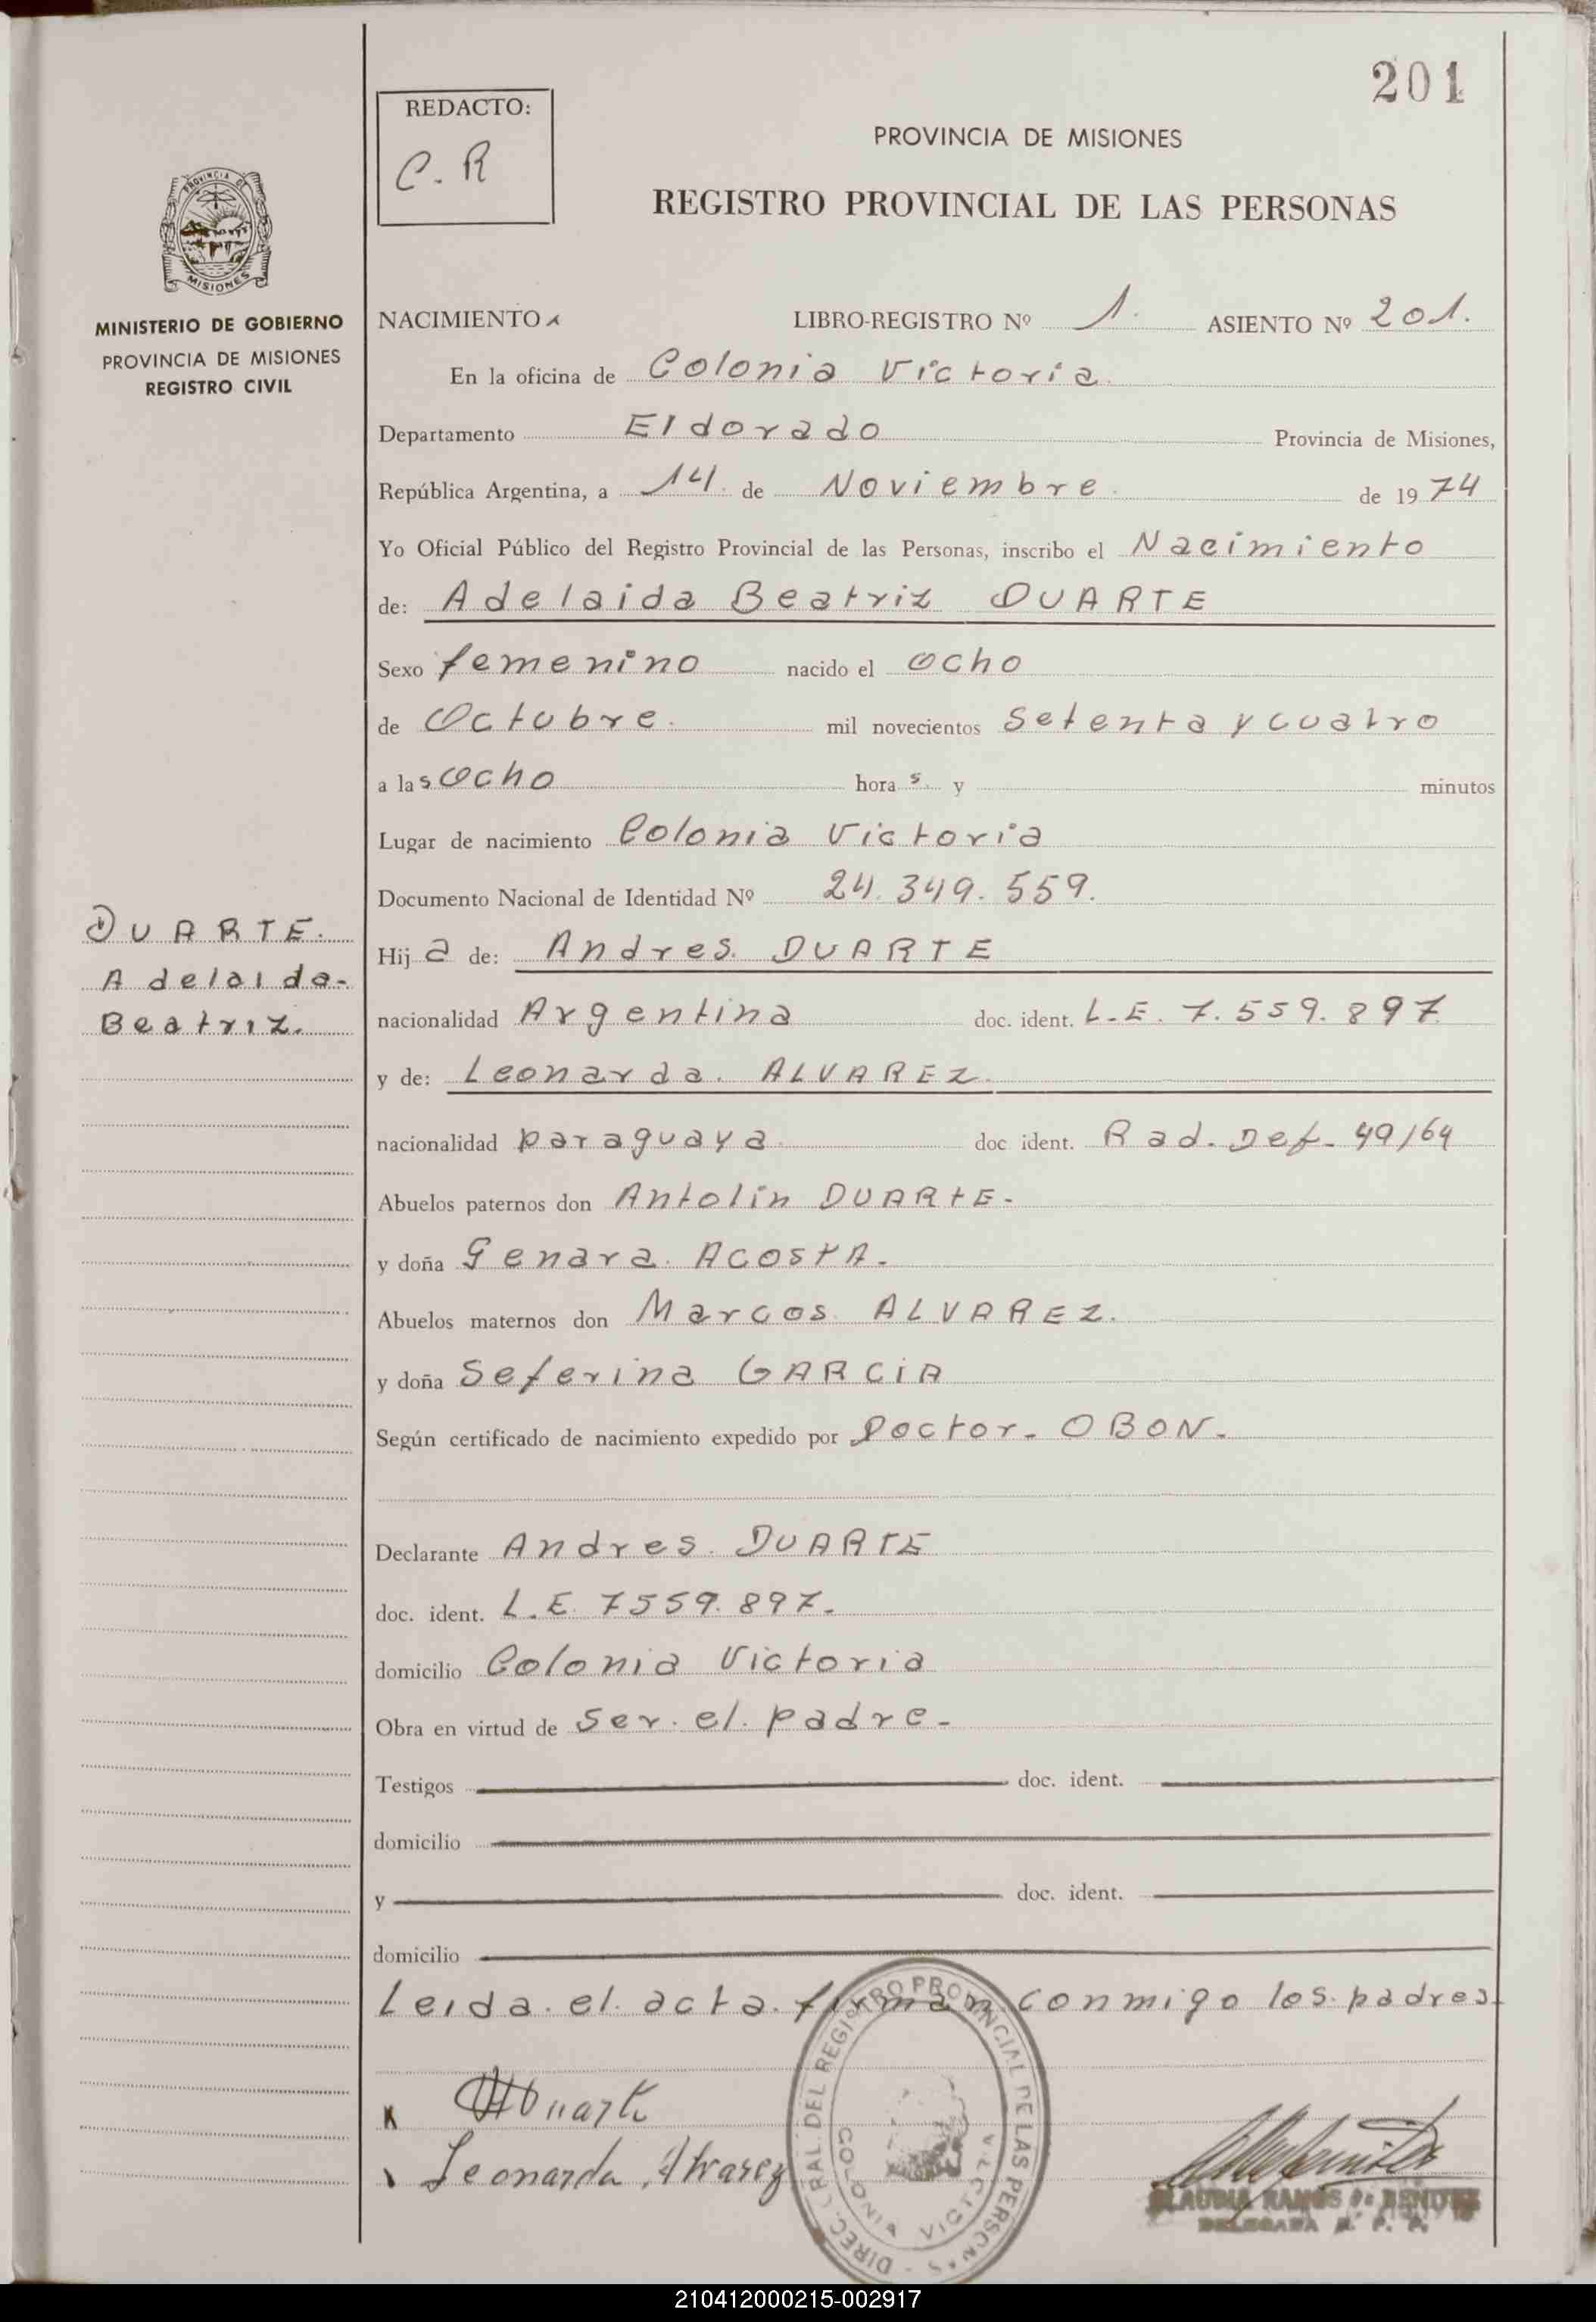 201
REDACTO:
C. R
PROVINCIA DE MISIONES
REGISTRO PROVINCIAL DE LAS PERSONAS
PROVINCIA DE
MISIONES
MINISTERIO DE GOBIERNO
PROVINCIA DE MISIONES
REGISTRO CIVIL
NACIMIENTO LIBRO-REGISTRO Nº 1. ASIENTO Nº 201.
En la oficina de Colonia Victoria.
Departamento Eldorado Provincia de Misiones,
República Argentina, a 14. de Noviembre. de 1974
Yo Oficial Público del Registro Provincial de las Personas, inscribo el Nacimiento
de: Adelaida Beatriz DUARTE
Sexo femenino nacido el Ocho
de Octubre. mil novecientos Setenta y cuatro
a las Ocho horas y minutos
Lugar de nacimiento Colonia Victoria
Documento Nacional de Identidad Nº 24.349.559.
DUARTE.
Adelaida-
Beatriz.
Hija de: Andres. DUARTE
nacionalidad Argentina doc. ident. L.E. 7.559.897
y de: Leonarda. ALVAREZ.
nacionalidad paraguaya. doc ident. Rad. Def- 49/64
Abuelos paternos don Antolin DUARTE-
y doña Genara. ACOSTA-
Abuelos maternos don Marcos. ALVAREZ.
y doña Seferina GARCIA
Según certificado de nacimiento expedido por Doctor- OBON-
Declarante Andres. DUARTE
doc. ident. L.E. 7559.897-
domicilio Colonia Victoria
Obra en virtud de Ser. el. padre-
Testigos doc. ident.
domicilio
y doc. ident.
domicilio
Leida. el. acta. firman. conmigo los. padres.
Duarte
Leonarda Alvarez
DIREC. GRAL. DEL REGISTRO PROVINCIAL DE LAS PERSONAS
COLONIA VICTORIA
CLAUDIA RAMOS DE BENITEZ
DELEGADA R. P. P.
210412000215-002917